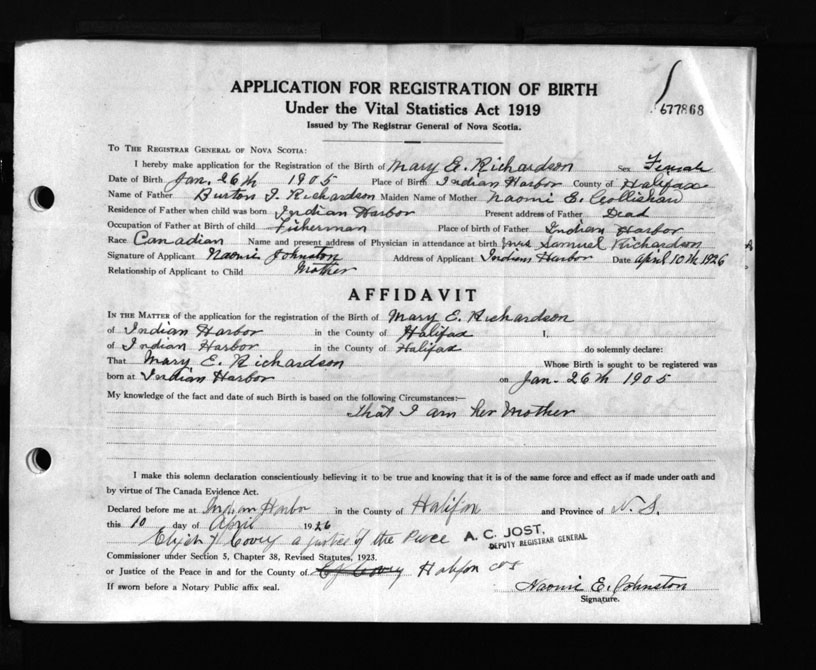 APPLICATION FOR REGISTRATION OF BIRTH
Under the Vital Statistics Act 1919
Issued by The Registrar General of Nova Scotia.
677868
TO THE REGISTRAR GENERAL OF NOVA SCOTIA:
I hereby make application for the Registration of the Birth of Mary E. Richardson Sex Female
Date of Birth Jan. 26th 1905 Place of Birth Indian Harbor County of Halifax
Name of Father Burton I. Richardson Maiden Name of Mother Naomi E. Collishaw
Residence of Father when child was born Indian Harbor Present address of Father Dead
Occupation of Father at Birth of child Fisherman Place of birth of Father Indian Harbor
Race Canadian Name and present address of Physician in attendance at birth Mrs Samuel Richardson
Signature of Applicant Naomi Johnston Address of Applicant Indian Harbor Date April 10th 1926
Relationship of Applicant to Child Mother
AFFIDAVIT
IN THE MATTER of the application for the registration of the Birth of Mary E. Richardson
of Indian Harbor in the County of Halifax I,
of Indian Harbor in the County of Halifax do solemnly declare:
That Mary E. Richardson Whose Birth is sought to be registered was
born at Indian Harbor on Jan. 26th 1905
My knowledge of the fact and date of such Birth is based on the following Circumstances:—
That I am her Mother
I make this solemn declaration conscientiously believing it to be true and knowing that it is of the same force and effect as if made under oath and
by virtue of The Canada Evidence Act.
Declared before me at Indian Harbor in the County of Halifax and Province of N. S.
this 10 day of April 1926
Covey a Justice of the Peace A. C. JOST,
DEPUTY REGISTRAR GENERAL
Commissioner under Section 5, Chapter 38, Revised Statutes, 1923.
or Justice of the Peace in and for the County of Halifax
If sworn before a Notary Public affix seal. Naomi E. Johnston
Signature.